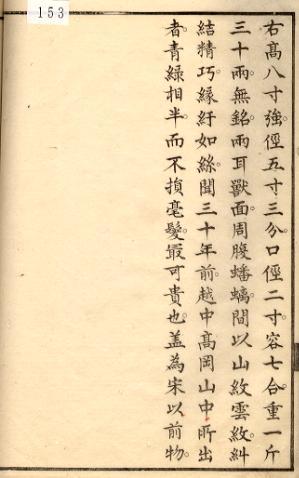 153
右髙八寸強。徑五寸三分。口徑二寸。容七合。重一斤
三十兩。無銘。兩耳獸面。周腹蟠螭。間以山紋雲紋。糾
結精巧。緣紆如絲。聞三十年前。越中髙岡山中所出
者。青綠相半。而不損毫髮。最可貴也。盖為宋以前物。